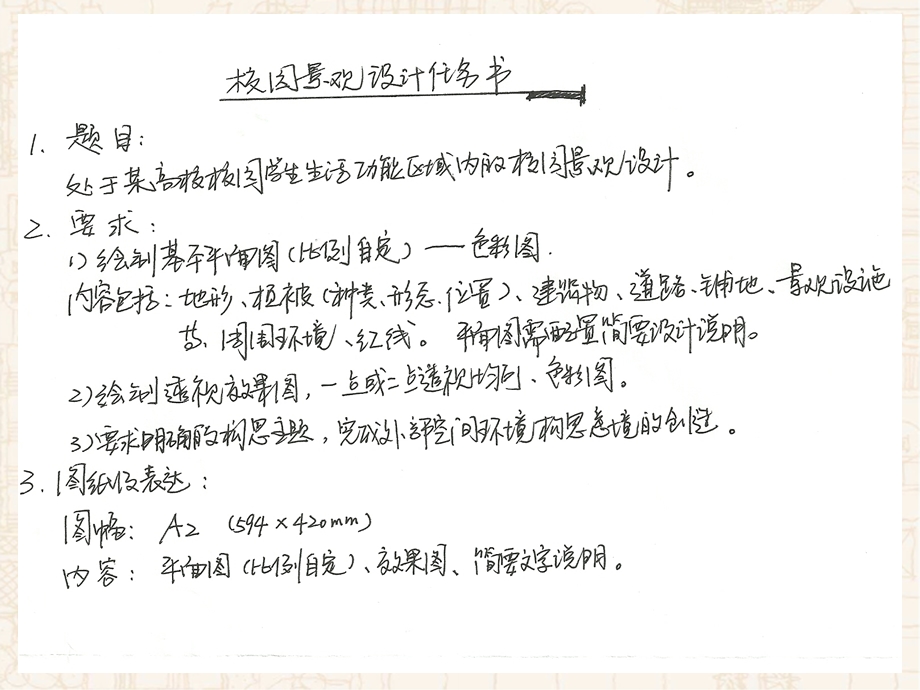 校园景观设计任务书
1. 题目:
处于某高校校园学生生活功能区域内的校园景观设计。
2. 要求:
1) 绘制基于平面图(比例自定)——色彩图.
内容包括:地形、植被(种类、形态、位置)、建筑物、道路、铺地、景观设施
等、周围环境、红线。 平面图需配置简要设计说明。
2) 绘制透视效果图,一点或二点透视均可、色彩图。
3) 要求明确的构思主题,完成外部空间环境构思意境的创造。
3. 图纸及表达:
图幅: A2 (594×420mm)
内容: 平面图(比例自定)、效果图、简要文字说明。